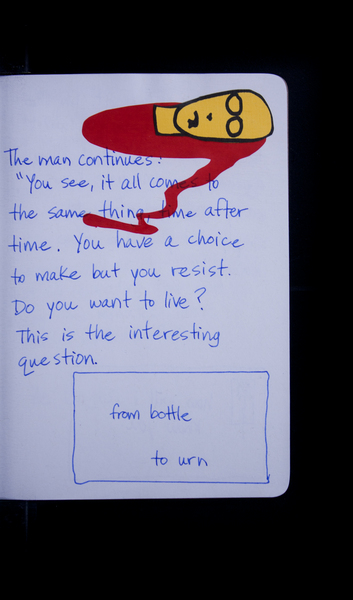 The man continues:
"You see, it all comes to
the same thing, time after
time. You have a choice
to make but you resist.
Do you want to live?
This is the interesting
question.
from bottle
to urn